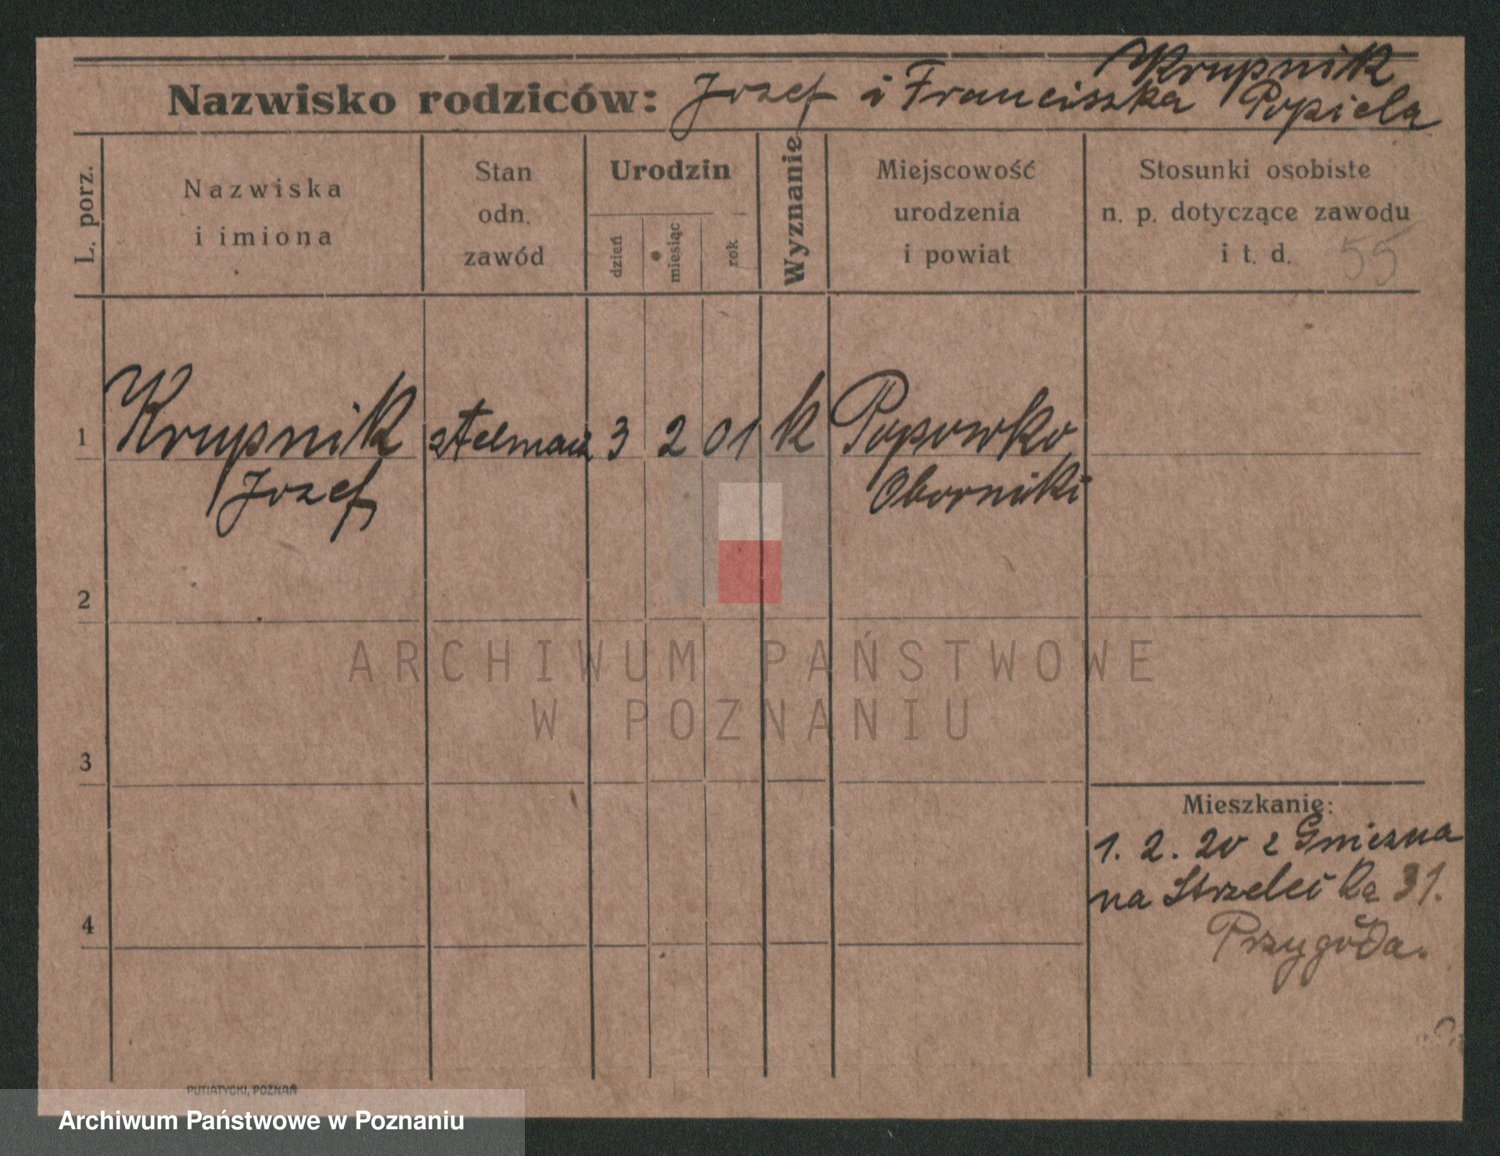 Nazwisko rodziców: Jozef i Franciszka Krupnik Popiela
L. porz.
Nazwiska
i imiona
Stan
odn.
zawód
Urodzin
dzień
miesiąc
rok
Wyznanie
Miejscowość
urodzenia
i powiat
Stosunki osobiste
n. p. dotyczące zawodu
i t. d. 55
1 Krupnik stelmach 3 2 01 k Popowko
Jozef Oborniki
2
3
4
ARCHIWUM PAŃSTWOWE
W POZNANIU
Mieszkanie:
1. 2. 20 z Gniezna
na Strzelecką 31.
Przygoda.
PUTIATYCKI, POZNAŃ
Archiwum Państwowe w Poznaniu